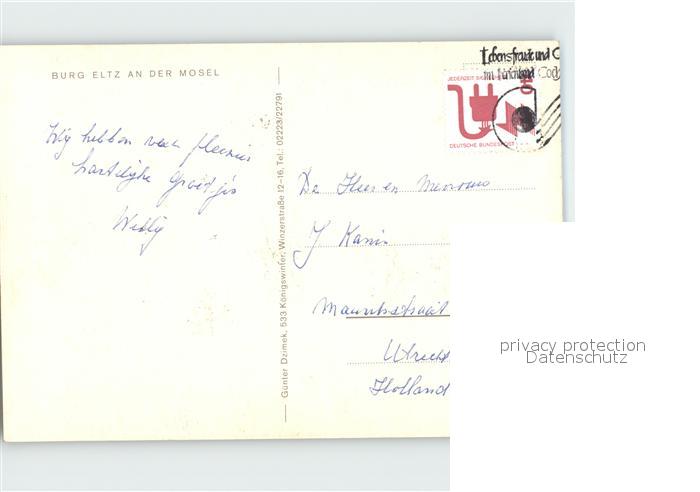 BURG ELTZ AN DER MOSEL
Wij hebben veel plezier
hartelijke groetjes
Willy
Günter Dzimek, 533 Königswinter, Winzerstraße 12-16, Tel.: 02223/22791
Lebensfreude und
JEDERZEIT SICHERHEIT
40
DEUTSCHE BUNDESPOST
De Heer en Mevrouw
J
Utrecht
Holland
privacy protection
Datenschutz